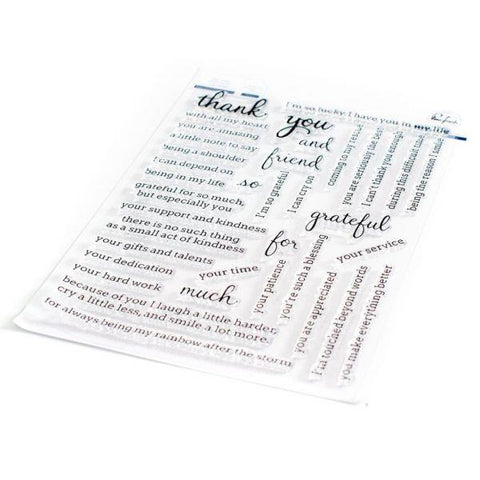 thank
I'm so lucky I have you in my life
you
with all my heart
you are amazing
a little note to say
being a shoulder
I can depend on
being in my life
and
friend
so
I'm so grateful
I can cry on
coming to my rescue
you are seriously the best
I can't thank you enough
during this difficult time
being the reason I smile
grateful for so much,
but especially you
your support and kindness
there is no such thing
as a small act of kindness
your gifts and talents
your dedication
your hard work
your time
much
grateful
for
your service
your patience
you're such a blessing
you are appreciated
I'm touched beyond words
you make everything better
because of you I laugh a little harder,
cry a little less, and smile a lot more.
for always being my rainbow after the storm